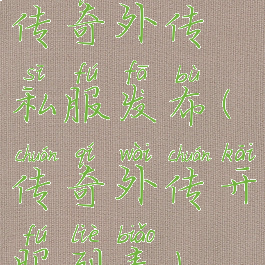 传奇外传
sī fú fā bù
私服发布(
chuán qí wài chuán kāi
传奇外传开
fú liè biǎo
服列表)